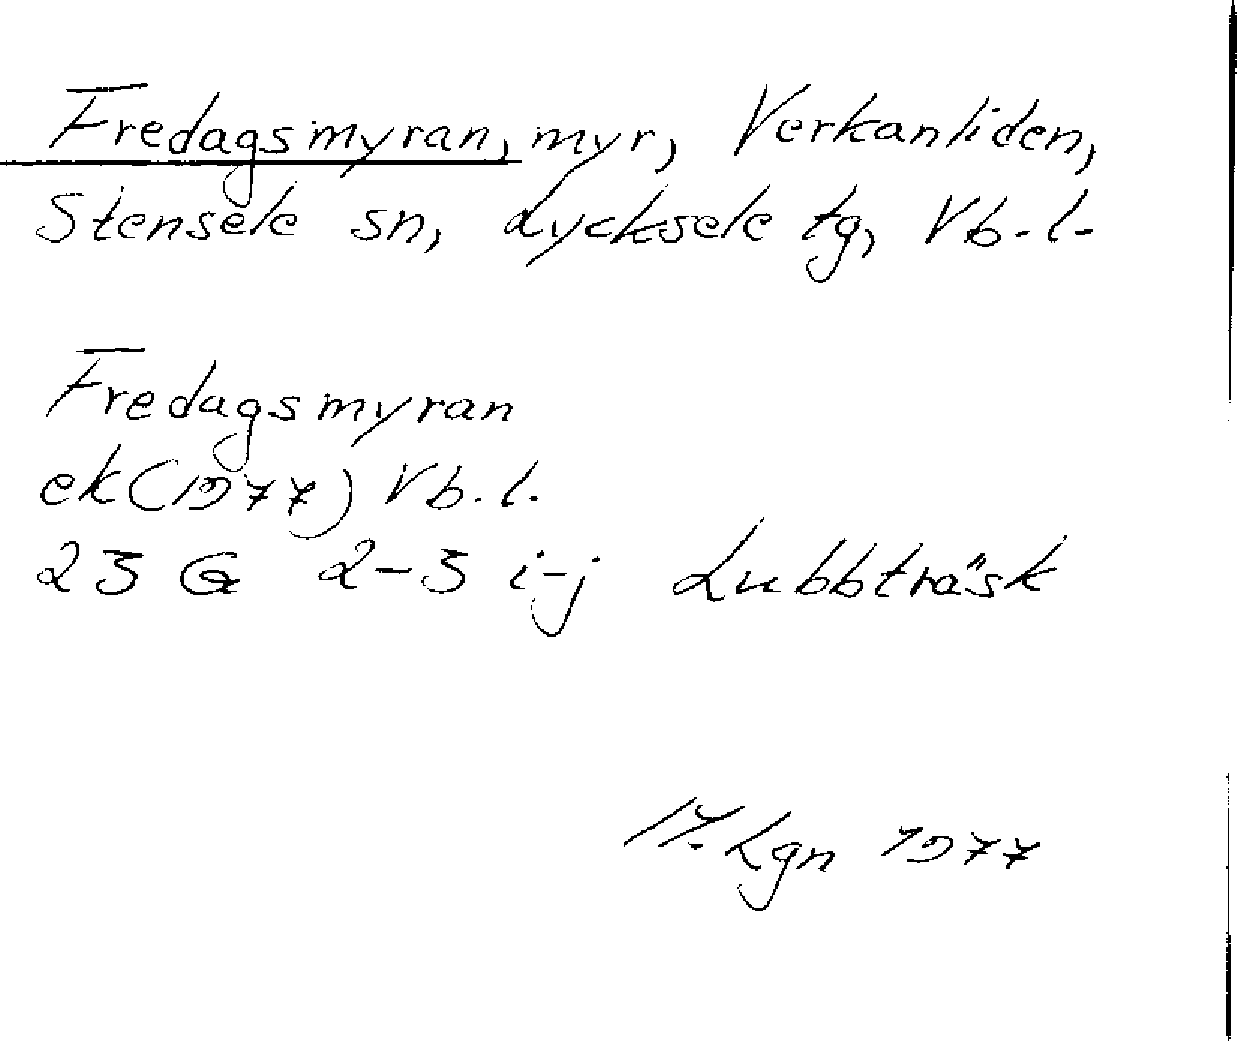 Fredagsmyran, myr, Verkanliden,
Stensele sn, Lycksele tg, Vb. l.
Fredagsmyran
ek (1977) Vb. l.
23 G 2-3 i-j Lubbträsk
Lgn 1977